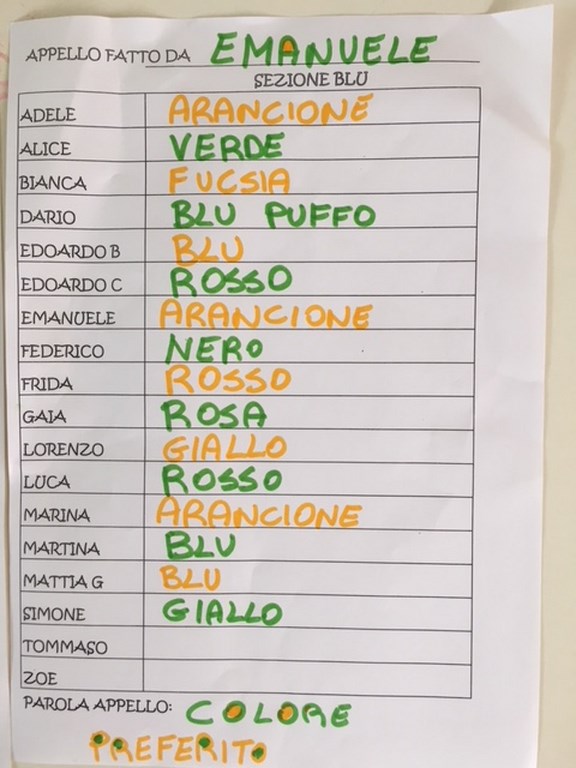 APPELLO FATTO DA EMANUELE
SEZIONE BLU
ADELE ARANCIONE
ALICE VERDE
BIANCA FUCSIA
DARIO BLU PUFFO
EDOARDO B BLU
EDOARDO C ROSSO
EMANUELE ARANCIONE
FEDERICO NERO
FRIDA ROSSO
GAIA ROSA
LORENZO GIALLO
LUCA ROSSO
MARINA ARANCIONE
MARTINA BLU
MATTIA G BLU
SIMONE GIALLO
TOMMASO
ZOE
PAROLA APPELLO: COLORE
PREFERITO